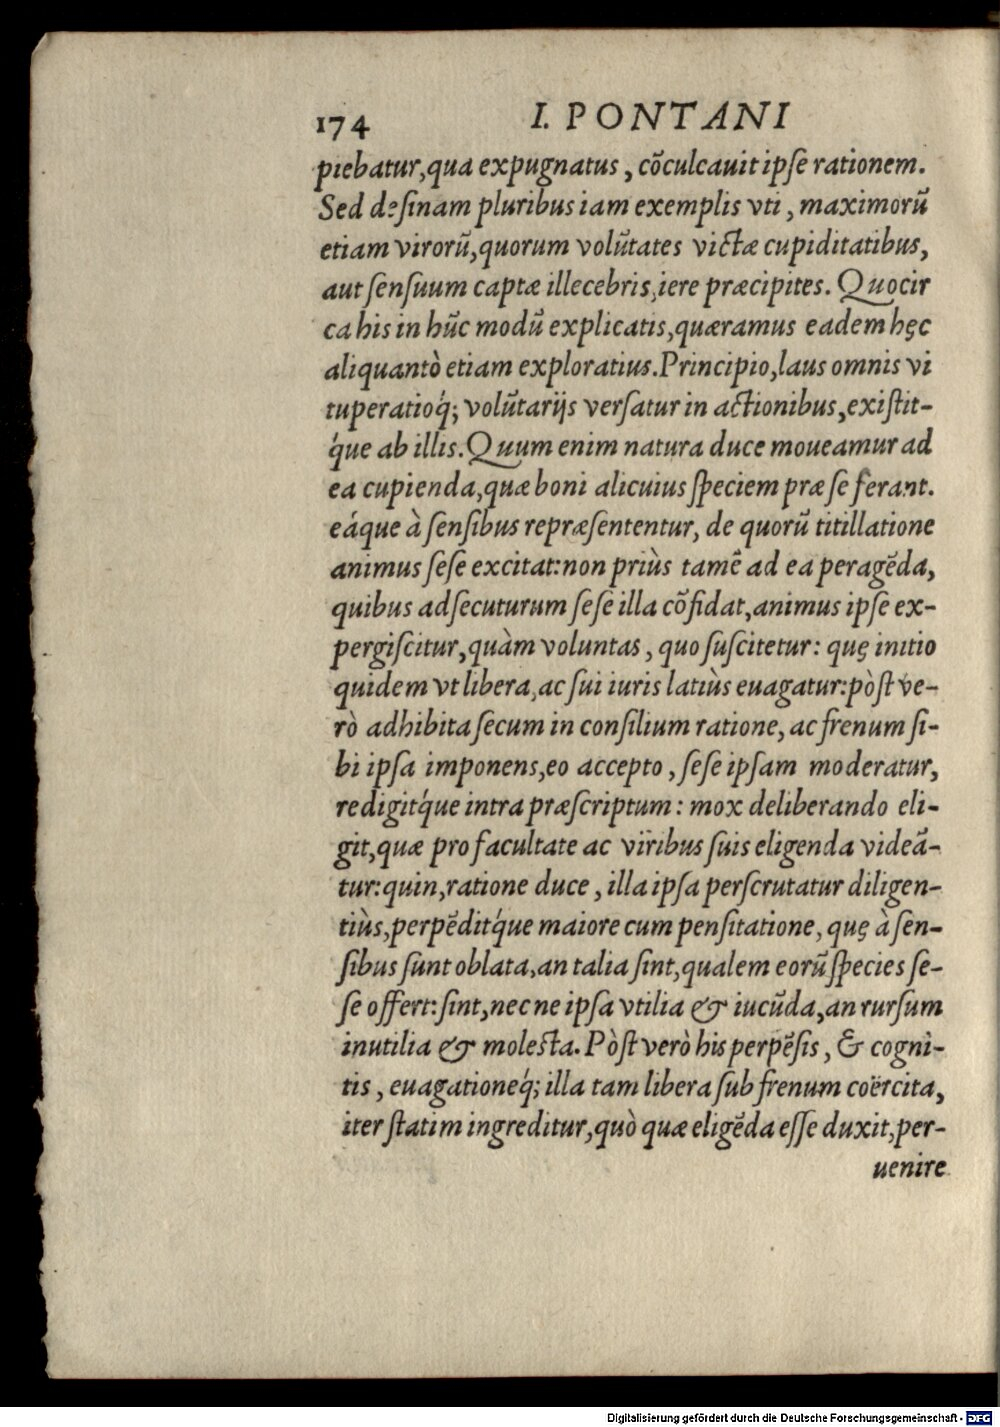 174 I. PONTANI
piebatur,qua expugnatus, cõculcauit ipſe rationem.
Sed deſinam pluribus iam exemplis vti, maximorũ
etiam virorũ,quorum volũtates victæ cupiditatibus,
aut ſenſuum captæ illecebris,iere præcipites. Quocir
ca his in hũc modũ explicatis,quæramus eadem hęc
aliquantò etiam exploratius.Principio,laus omnis vi
tuperatioq́; volũtarijs verſatur in actionibus,exiſtit-
q́ue ab illis.Quum enim natura duce moueamur ad
ea cupienda,quæ boni alicuius ſpeciem præ ſe ferant.
eáque à ſenſibus repræſententur, de quorũ titillatione
animus ſeſe excitat:non priùs tamẽ ad ea peragẽda,
quibus adſecuturum ſeſe illa cõfidat,animus ipſe ex-
pergiſcitur,quàm voluntas, quo ſuſcitetur: quę initio
quidem vt libera,ac ſui iuris latiùs euagatur:pòſt ve-
rò adhibita ſecum in conſilium ratione, ac frenum ſi-
bi ipſa imponens,eo accepto, ſeſe ipſam moderatur,
redigitq́ue intra præſcriptum: mox deliberando eli-
git,quæ pro facultate ac viribus ſuis eligenda videã-
tur:quin,ratione duce, illa ipſa perſcrutatur diligen-
tiùs,perpẽditq́ue maiore cum penſitatione, quę à ſen-
ſibus ſunt oblata,an talia ſint,qualem eorũ ſpecies ſe-
ſe offert:ſint,nec ne ipſa vtilia & iucũda,an rurſum
inutilia & moleſta. Pòſt verò his perpẽſis, & cogni-
tis, euagationeq́; illa tam libera ſub frenum coërcita,
iter ſtatim ingreditur,quò quæ eligẽda eſſe duxit,per-
uenire
Digitalisierung gefördert durch die Deutsche Forschungsgemeinschaft - DFG